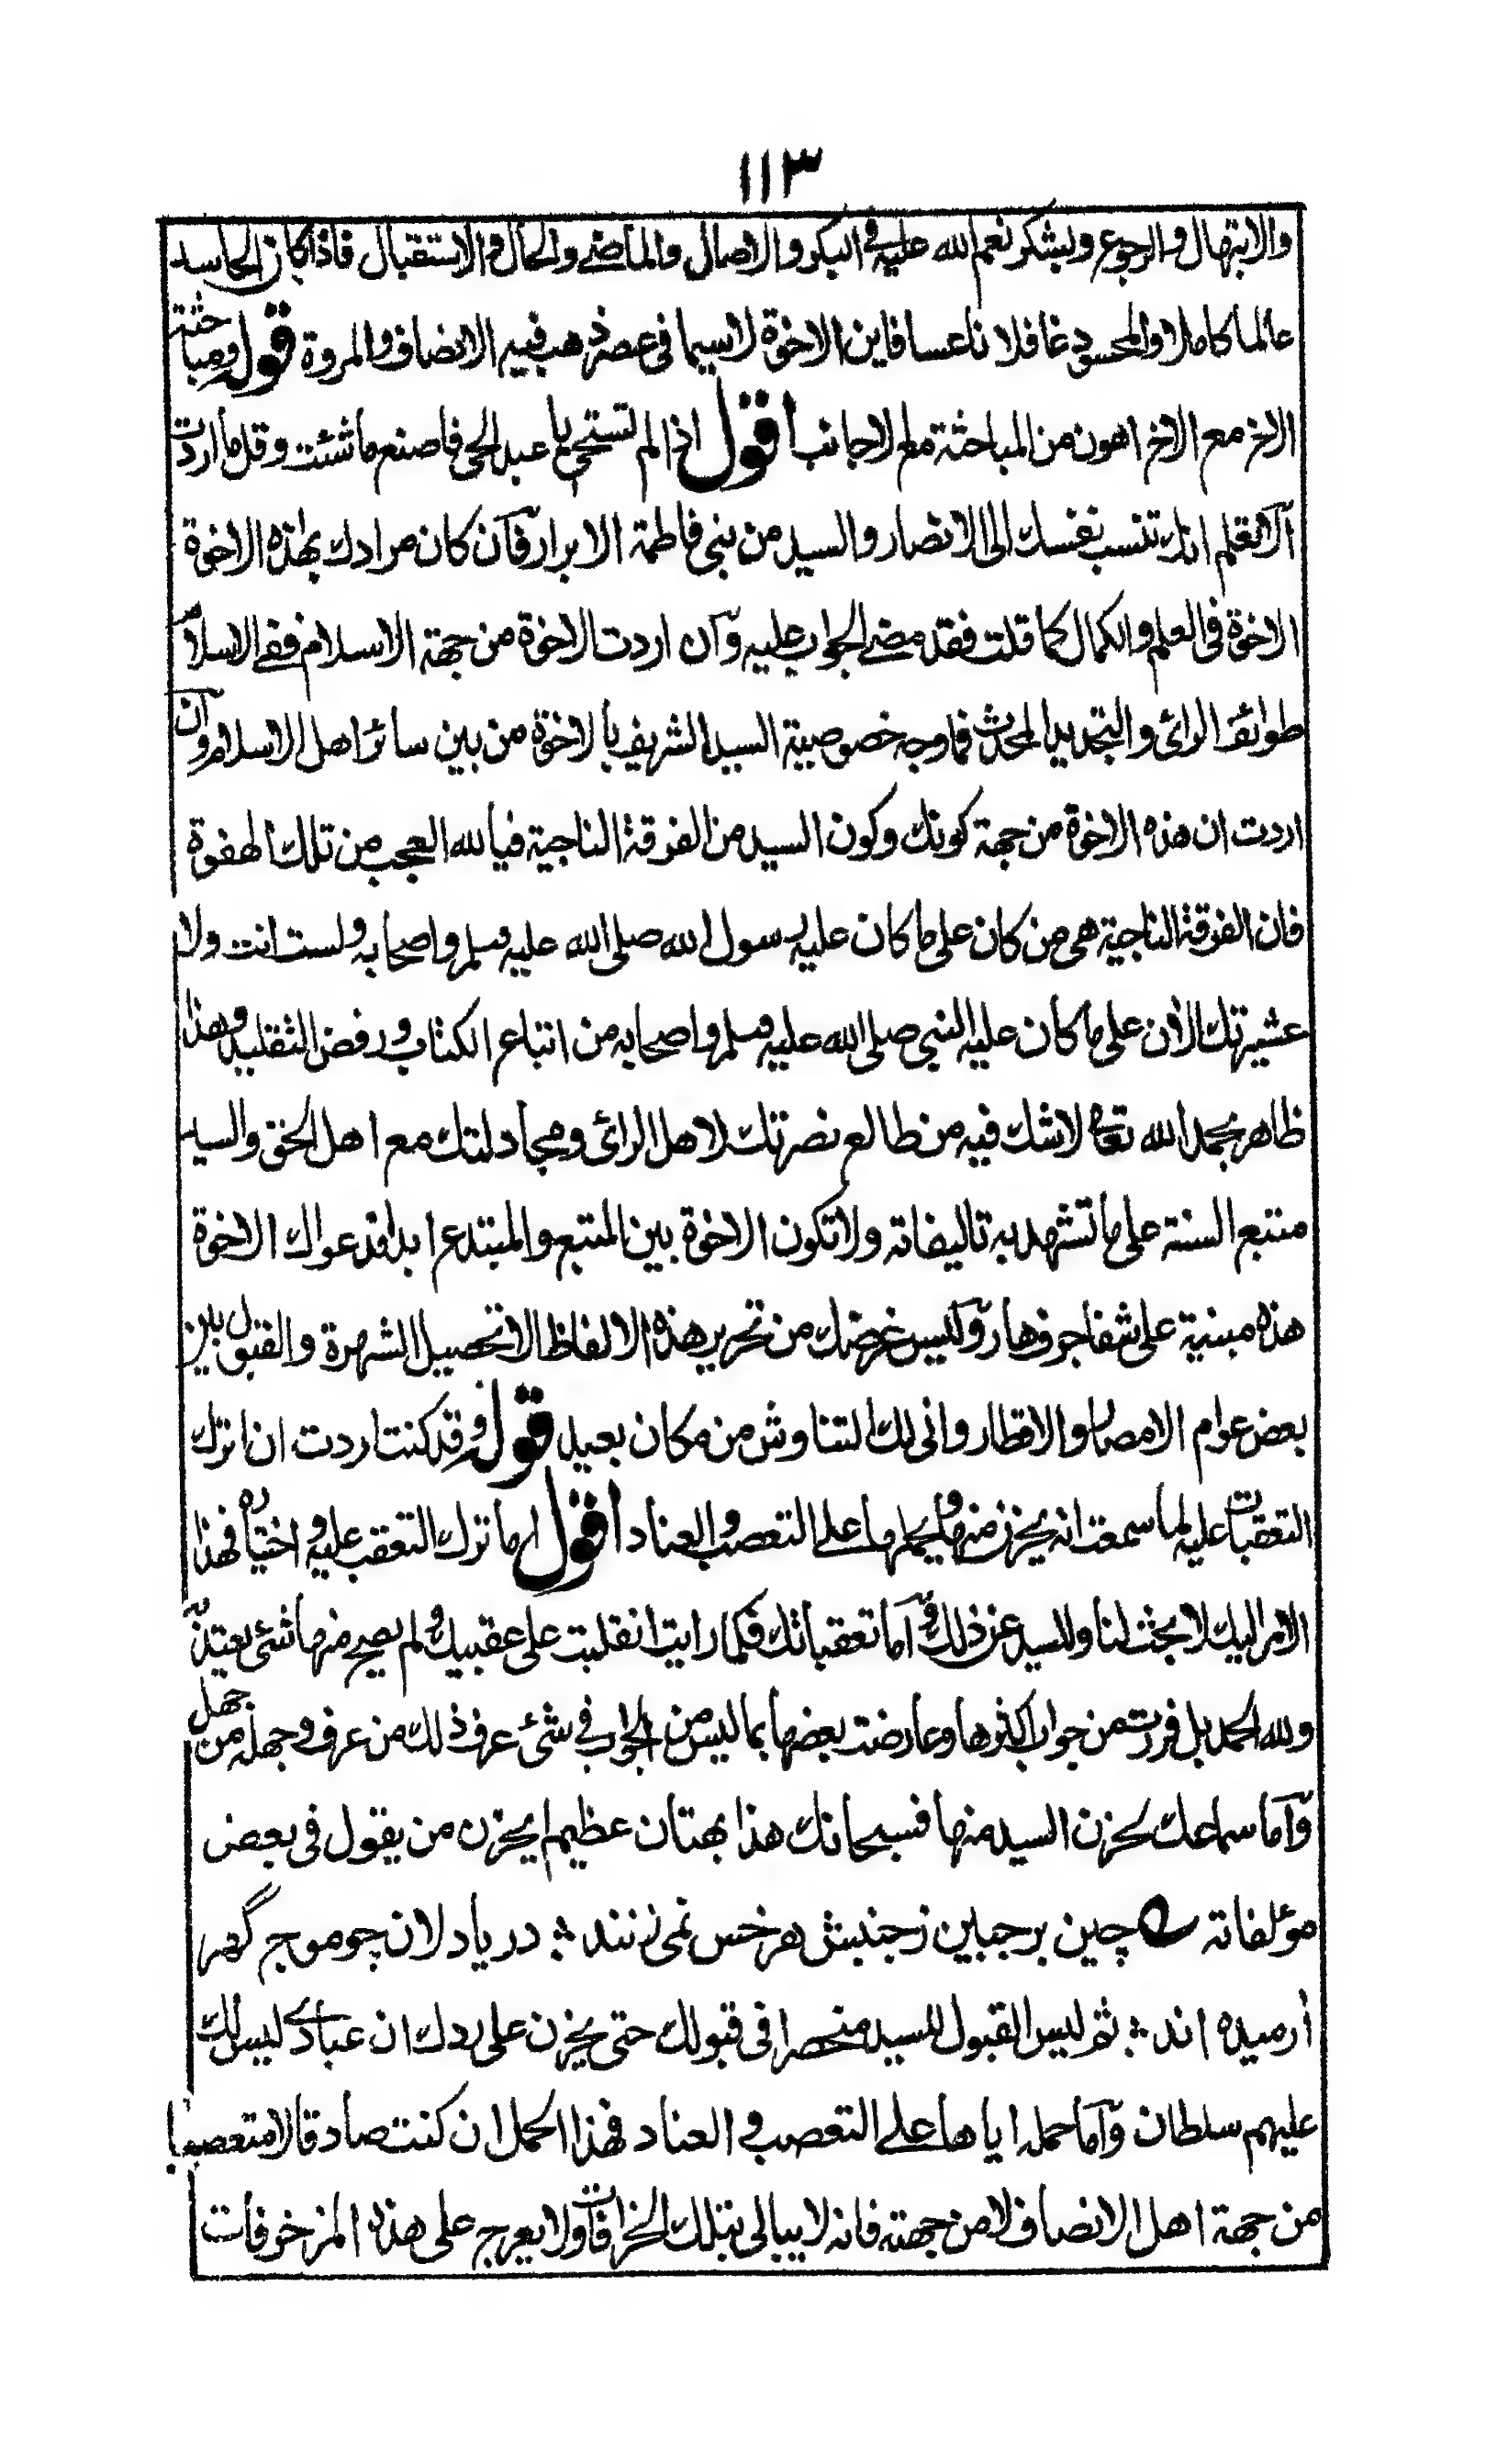 ١١٣
والابتهال والرجوع ويشكر نعم الله عليه فى البكر والاصال والماضى والحال والاستقبال فاذا كان الحاسد
عالما كاملا والمحسود غافلا ناعسا فاين الاخوة لاسيما فى عصر ذهب فيه الانصاف والمروة قوله ومباحثة
الاخ مع الاخ اهون من المباحثة مع الاجانب اقول اذا لم تستحى يا عبد الحى فاصنع ما شئت وقل ما اردت
الا تعلم انك تنسب نفسك الى الانصار والسيد من بنى فاطمة الابرار فان كان مرادك بهذه الاخوة
الاخوة فى العلم والكمال كما قلت فقد مضى الجواب عليه وان اردت الاخوة من جهة الاسلام ففى الاسلام
طوائف الرائ والتجديد المحدث فما وجه خصوصية السيد الشريف بالاخوة من بين سائر اهل الاسلام وان
اردت ان هذه الاخوة من جهة كونك وكون السيد من الفرقة الناجية فيا لله العجب من تلك الهفوة
فان الفرقة الناجية هى من كان على ما كان عليه رسول الله صلى الله عليه وسلم واصحابه ولست انت ولا
عشيرتك الان على ما كان عليه النبى صلى الله عليه وسلم واصحابه من اتباع الكتاب ورفض التقليد وهذا
ظاهر بحمد الله تعالى لا شك فيه من طالع نصرتك لاهل الرائ ومجادلتك مع اهل الحق والسيد
متبع السنة على ما تشهد به تاليفاته ولا تكون الاخوة بين المتبع والمبتدع ابدا فدعواك الاخوة
هذه مبنية على شفا جرف هار وليس غرضك من تحرير هذه الالفاظ الا تحصيل الشهرة والقبول بين
بعض عوام الامصار والاقطار وانى لك التناوش من مكان بعيد قوله وقد كنت اردت ان اترك
التعقبات عليه لما سمعت انه يحزن منها ويحملها على التعصب والعناد اقول اما ترك التعقب عليه واختياره فهذا
الامر اليك لا بحث لنا وللسيد عن ذلك واما تعقباتك فكما رايت انقلبت على عقبيك ولم يصح منها شئ يعتد به
ولله الحمد بل فررت من جواب اكثرها وعارضت بعضها بما ليس من الجواب فى شئ عرف ذلك من عرف وجهله من جهل
واما سماعك لحزن السيد منها فسبحانك هذا بهتان عظيم ايحزن من يقول فى بعض
مؤلفاته ؎ چين بر جبين ز جنبش هر خس نمى زنند ؞ دريا دلان چو موج گهر
آرميده اند ؞ ثم ليس القبول للسيد منحصرا فى قبولك حتى يحزن على ردك ان عبادى ليس لك
عليهم سلطان واما حمله اياها على التعصب والعناد فهذا الحمل ان كنت صادقا لا متعصبا
من جهة اهل الانصاف لا من جهته فانه لا يبالى بتلك الخرافات ولا يعرج على هذه المزخرفات